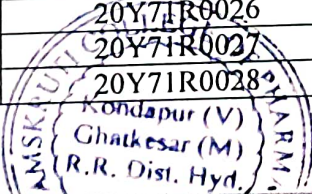 20Y71R0026
20Y71R0027
20Y71R0028
Kondapur (V)
Ghatkesar (M)
R.R. Dist. Hyd.